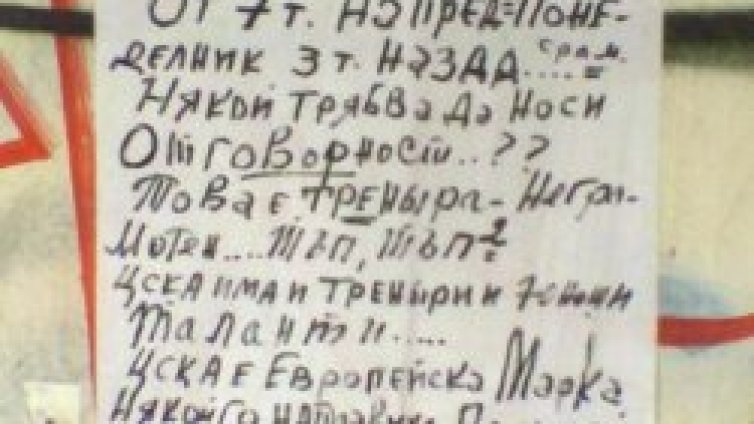 От 7 т. НапреД=Поне-
делник 3 т. НаЗАД....= срам.
Някой трябва да носи
Отговорност..??
Това е треньра- Негра-
мотен....тъп, тъп?
ЦСКА има и треньри и
Таланти.....
ЦСКА е Европейска Марка
Някой го направи